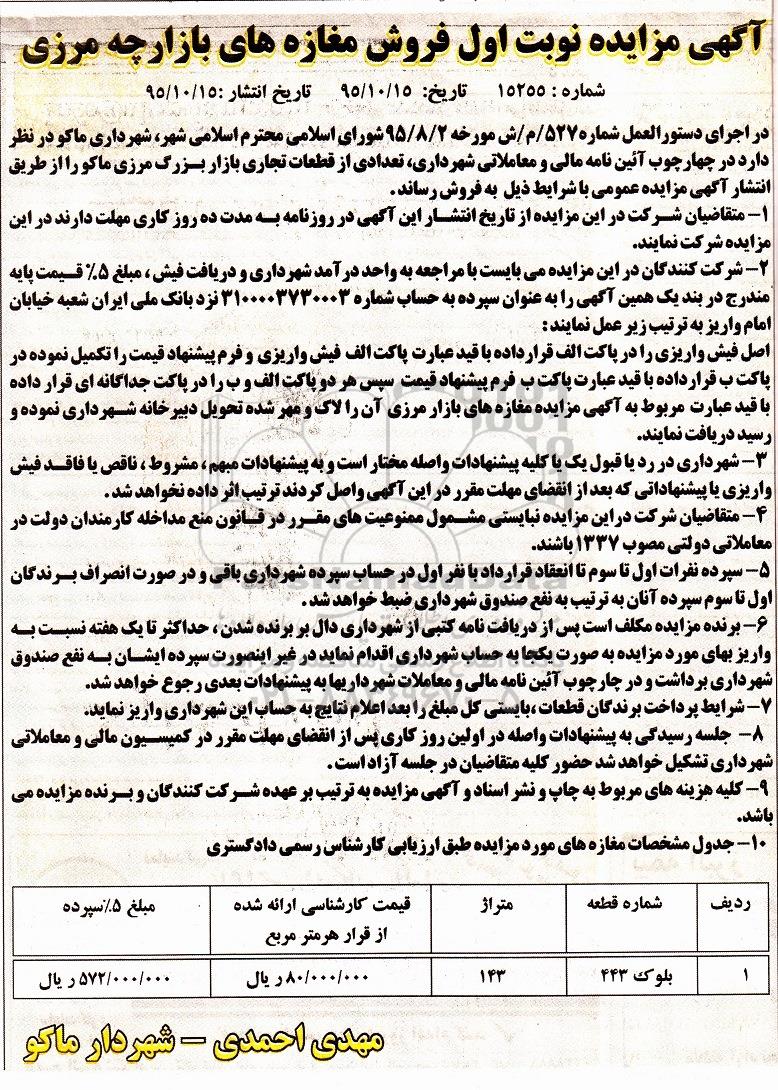 آگهی مزایده نوبت اول فروش مغازه های بازارچه مرزی
شماره : ۱۵۲۵۵ تاریخ: ۹۵/۱۰/۱۵ تاریخ انتشار :۹۵/۱۰/۱۵
در اجرای دستورالعمل شماره ۵۲۷/م/ش مورخه ۹۵/۸/۲ شورای اسلامی محترم اسلامی شهر، شهرداری ماکو در نظر
دارد در چهارچوب آئین نامه مالی و معاملاتی شهرداری، تعدادی از قطعات تجاری بازار بزرگ مرزی ماکو را از طریق
انتشار آگهی مزایده عمومی با شرایط ذیل به فروش رساند.
۱- متقاضیان شرکت در این مزایده از تاریخ انتشار این آگهی در روزنامه به مدت ده روز کاری مهلت دارند در این
مزایده شرکت نمایند.
۲- شرکت کنندگان در این مزایده می بایست با مراجعه به واحد درآمد شهرداری و دریافت فیش ، مبلغ ۵٪ قیمت پایه
مندرج در بند یک همین آگهی را به عنوان سپرده به حساب شماره ۳۱۰۰۰۰۳۷۳۰۰۰۳ نزد بانک ملی ایران شعبه خیابان
امام واریز به ترتیب زیر عمل نمایند :
اصل فیش واریزی را در پاکت الف قرار داده با قید عبارت پاکت الف فیش واریزی و فرم پیشنهاد قیمت را تکمیل نموده در
پاکت ب قرار داده با قید عبارت پاکت ب فرم پیشنهاد قیمت سپس هر دو پاکت الف و ب را در پاکت جداگانه ای قرار داده
با قید عبارت مربوط به آگهی مزایده مغازه های بازار مرزی آن را لاک و مهر شده تحویل دبیرخانه شهرداری نموده و
رسید دریافت نمایند.
۳- شهرداری در رد یا قبول یک یا کلیه پیشنهادات واصله مختار است و به پیشنهادات مبهم ، مشروط ، ناقص یا فاقد فیش
واریزی یا پیشنهاداتی که بعد از انقضای مهلت مقرر در این آگهی واصل کردند ترتیب اثر داده نخواهد شد .
۴- متقاضیان شرکت در این مزایده نبایستی مشمول ممنوعیت های مقرر در قانون منع مداخله کارمندان دولت در
معاملاتی دولتی مصوب ۱۳۳۷ باشند.
۵- سپرده نفرات اول تا سوم تا انعقاد قرارداد با نفر اول در حساب سپرده شهرداری باقی و در صورت انصراف برندگان
اول تا سوم سپرده آنان به ترتیب به نفع صندوق شهرداری ضبط خواهد شد .
۶- برنده مزایده مکلف است پس از دریافت نامه کتبی از شهرداری دال بر برنده شدن ، حداکثر تا یک هفته نسبت به
واریز بهای مورد مزایده به صورت یکجا به حساب شهرداری اقدام نماید در غیر اینصورت سپرده ایشان به نفع صندوق
شهرداری برداشت و در چارچوب آئین نامه مالی و معاملات شهرداریها به پیشنهادات بعدی رجوع خواهد شد.
۷- شرایط پرداخت برندگان قطعات ،بایستی کل مبلغ را بعد اعلام نتایج به حساب این شهرداری واریز نماید.
۸- جلسه رسیدگی به پیشنهادات واصله در اولین روز کاری پس از انقضای مهلت مقرر در کمیسیون مالی و معاملاتی
شهرداری تشکیل خواهد شد حضور کلیه متقاضیان در جلسه آزاد است .
۹- کلیه هزینه های مربوط به چاپ و نشر اسناد و آگهی مزایده به ترتیب بر عهده شرکت کنندگان و برنده مزایده می
باشد.
۱۰- جدول مشخصات مغازه های مورد مزایده طبق ارزیابی کارشناس رسمی دادگستری
ردیف شماره قطعه متراژ قیمت کارشناسی ارائه شده مبلغ ۵٪سپرده
از قرار هرمتر مربع
۱ بلوک ۴۴۳ ۱۴۳ ۸۰/۰۰۰/۰۰۰ ریال ۵۷۲/۰۰۰/۰۰۰ ریال
مهدی احمدی – شهردار ماکو